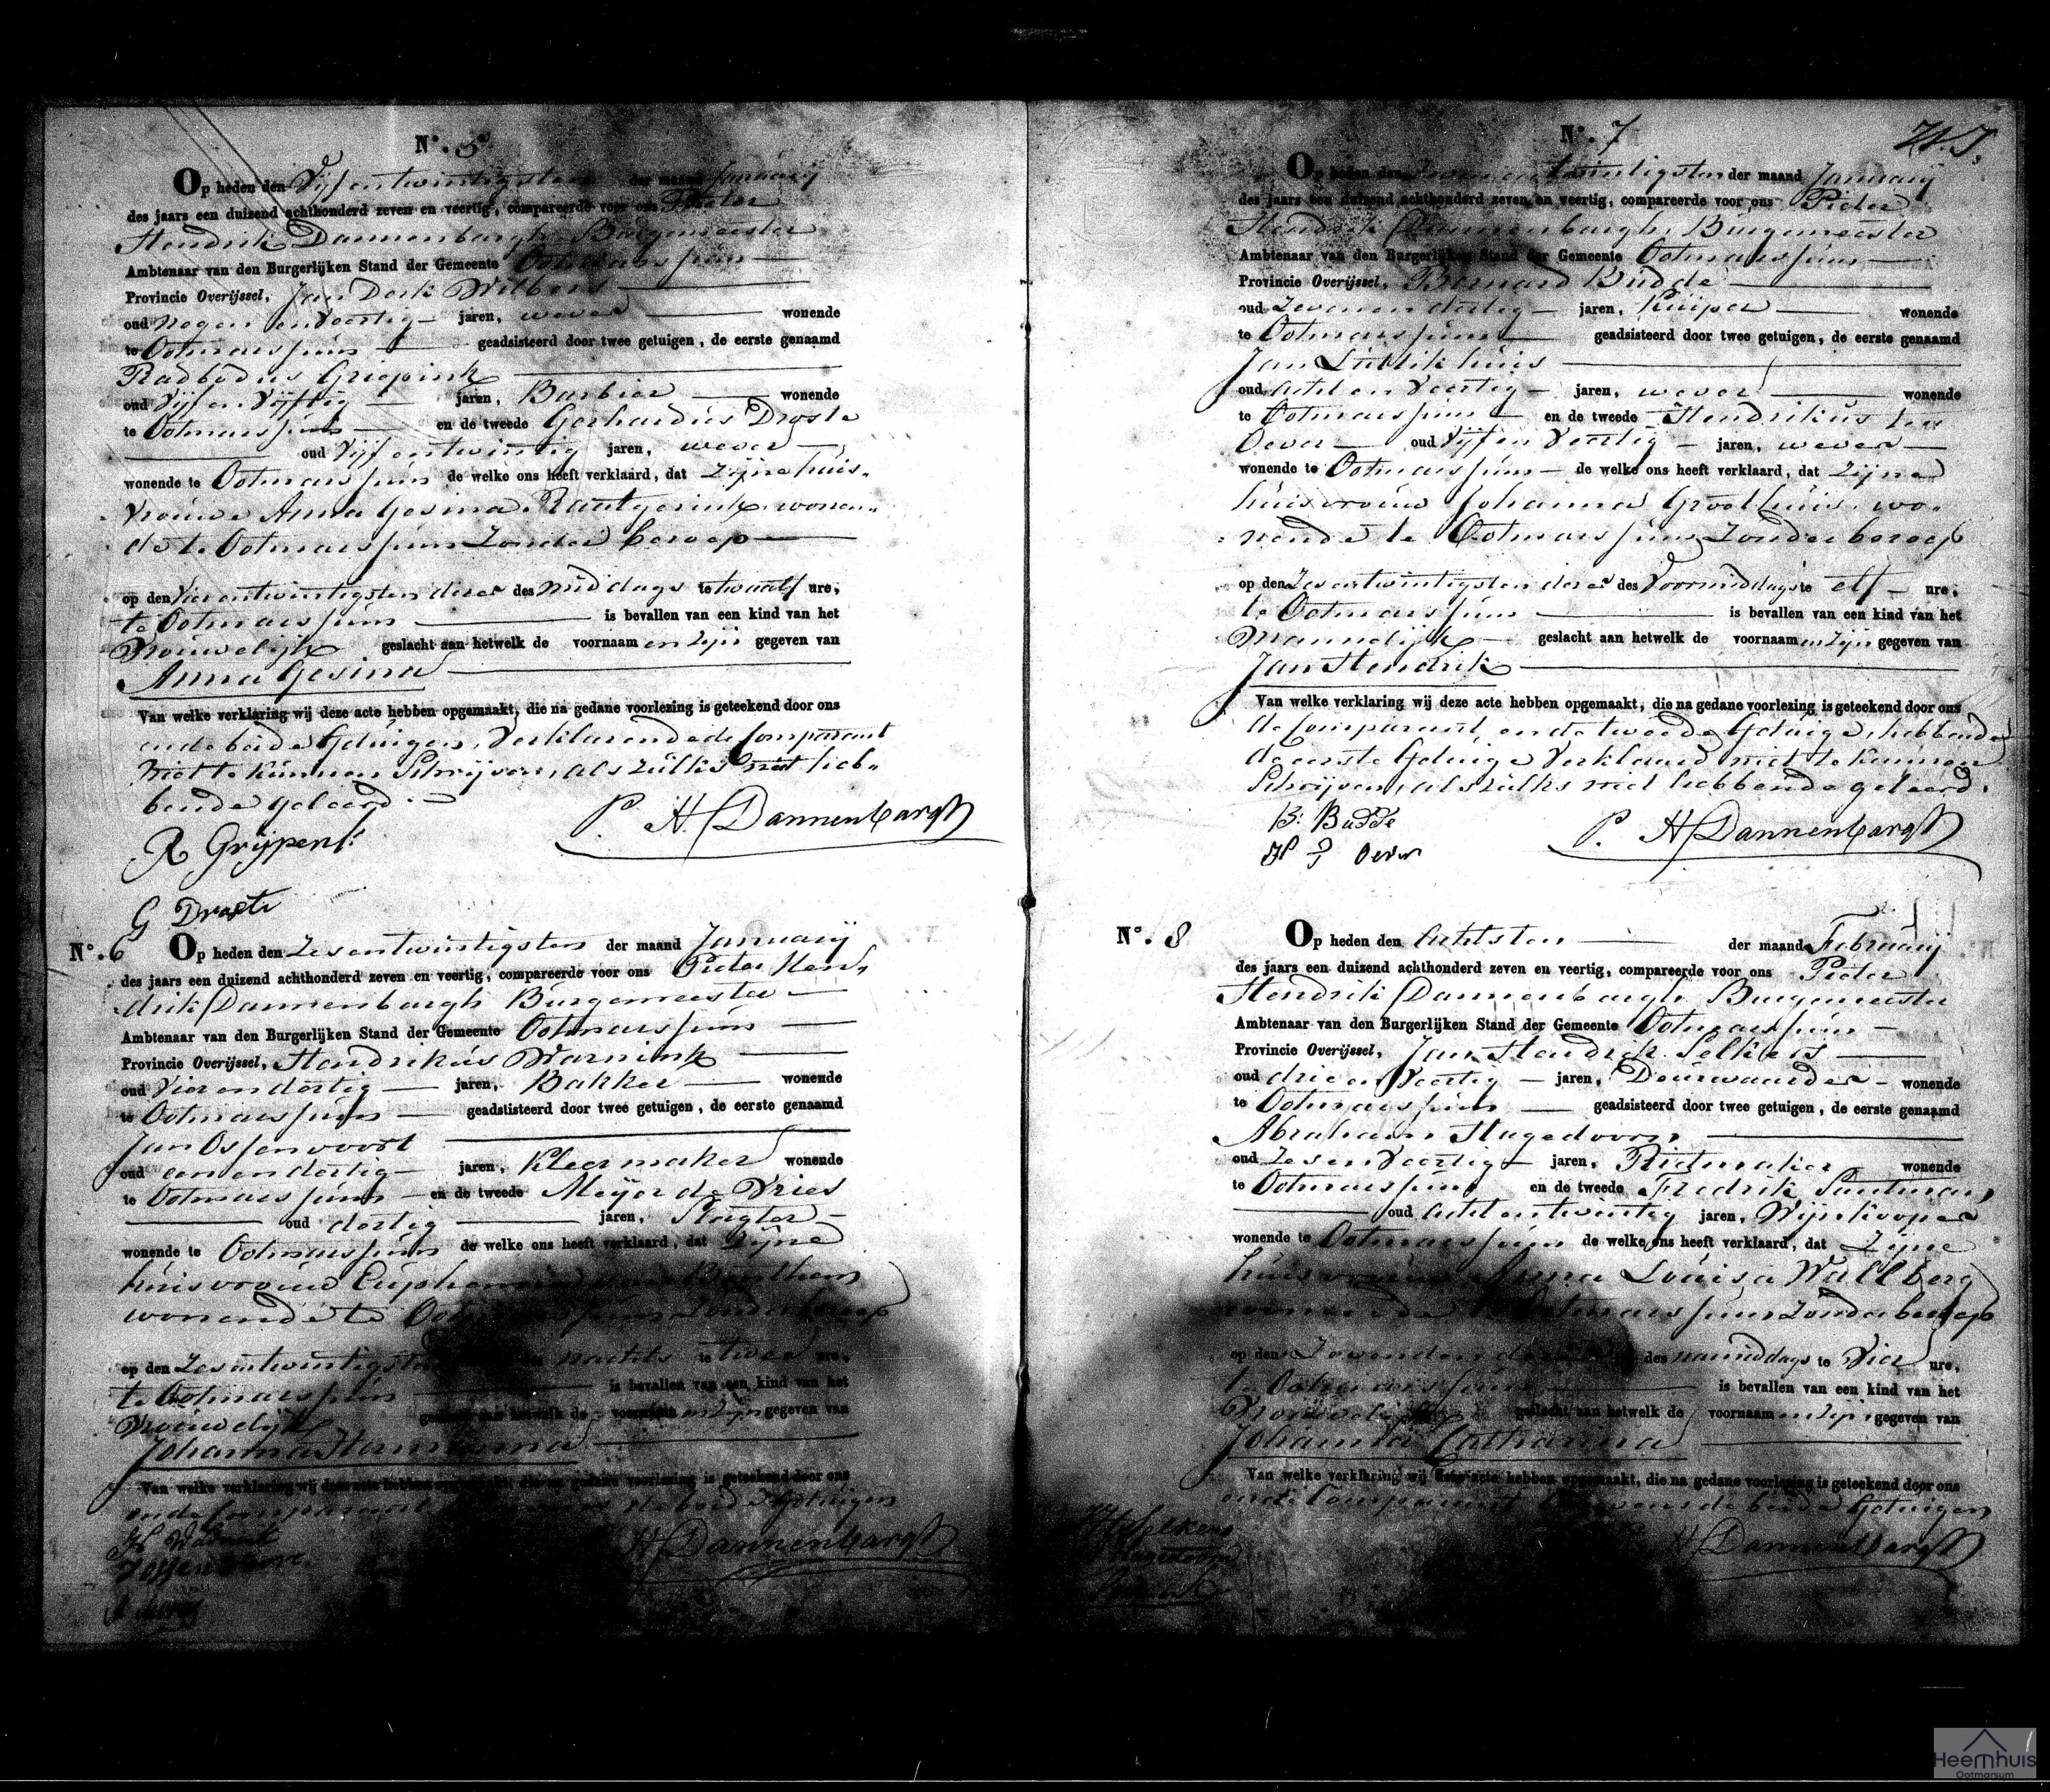 N°. 5
Op heden den Vijf en twintigsten der maand Januarij
des jaars een duizend achthonderd zeven en veertig, compareerde voor ons Pieter
Hendrik Dannenbargh Burgemeester
Ambtenaar van den Burgerlijken Stand der Gemeente Ootmarssum
Provincie Overijssel, Jan Derk Wilbers
oud negen en veertig jaren, wever wonende
te Ootmarssum geadsisteerd door twee getuigen, de eerste genaamd
Radbodus Greepink
oud Vijf en Vijftig jaren, Barbier wonende
te Ootmarssum en de tweede Gerhardus Droste
oud Vijf entwintig jaren, wever
wonende te Ootmarssum de welke ons heeft verklaard, dat Zijne huis„
vrouwe Anna Gesina wonen„
de te Ootmarssum Zonder beroep
op den Vier entwintigsten dezer des middags te twaalf ure,
te Ootmarssum is bevallen van een kind van het
Vrouwelijk geslacht aan hetwelk de voornaam en zijn gegeven van
Anna Gesina
Van welke verklaring wij deze acte hebben opgemaakt, die na gedane voorlezing is geteekend door ons
en de beide Getuigen, verklarende de Comparant
niet te kunnen Schrijven, als zulks niet heb„
bende geleerd.
P. H. Dannenbargh
R Grijpenk
G Droste
N°. 6 Op heden den Zes entwintigsten der maand Januarij
des jaars een duizend achthonderd zeven en veertig, compareerde voor ons Pieter Hen„
drik Dannenbargh Burgemeester
Ambtenaar van den Burgerlijken Stand der Gemeente Ootmarssum
Provincie Overijssel, Hendrikus Warnink
oud Vier en dertig jaren, Bakker wonende
te Ootmarssum geadsisteerd door twee getuigen, de eerste genaamd
Jan Ossenvoort
oud een en dertig jaren, Kleermaker wonende
te Ootmarssum en de tweede Meijer de Vries
oud dertig jaren, Slagter
wonende te Ootmarssum de welke ons heeft verklaard, dat Zijne
huisvrouw
wonende te Ootmarssum Zonder beroep
op den Zes entwintigsten nachts te twee ure,
te Ootmarssum is bevallen van een kind van het
Vrouwelijk geslacht aan hetwelk de voornaam en zijn gegeven van
Johanna Hermanna
Van welke verklaring wij deze acte hebben opgemaakt, die na gedane voorlezing is geteekend door ons
en de Comparant de beide Getuigen
H Warnink
H Dannenbargh
N°. 7
Op heden den entwintigsten der maand Januarij
des jaars een duizend achthonderd zeven en veertig, compareerde voor ons Pieter
Hendrik Dannenbargh Burgemeester
Ambtenaar van den Burgerlijken Stand der Gemeente Ootmarssum
Provincie Overijssel, Bernard Budde
oud Zeven en dertig jaren, Kuiper wonende
te Ootmarssum geadsisteerd door twee getuigen, de eerste genaamd
Jan Lubbikhuis
oud acht en Veertig jaren, wever wonende
te Ootmarssum en de tweede Hendrikus ten
Oever oud Vijf en Veertig jaren, wever
wonende te Ootmarssum de welke ons heeft verklaard, dat Zijne
huisvrouw Johanna Groothuis, wo„
nende te Ootmarssum Zonder beroep
op den Zes entwintigsten dezer des Voormiddags te elf ure,
te Ootmarssum is bevallen van een kind van het
Mannelijk geslacht aan hetwelk de voornaam en zijn gegeven van
Jan Hendrik
Van welke verklaring wij deze acte hebben opgemaakt, die na gedane voorlezing is geteekend door ons
de Comparant, en de tweede Getuige, hebbende
de eerste Getuige Verklaard niet te kunnen
Schrijven, als zulks niet hebbende geleerd.
B: Budde
P. H Dannenbargh
H T Oever
N°. 8 Op heden den Achtsten der maand Februarij
des jaars een duizend achthonderd zeven en veertig, compareerde voor ons Pieter
Hendrik Dannenbargh Burgemeester
Ambtenaar van den Burgerlijken Stand der Gemeente Ootmarssum
Provincie Overijssel, Jan Hendrik Selkers
oud drie en Veertig jaren, Deurwaarder wonende
te Ootmarssum geadsisteerd door twee getuigen, de eerste genaamd
Abraham Hagedoorn
oud Zes en Veertig jaren, Rietmaker wonende
te Ootmarssum en de tweede Fredrik Santman
oud Acht entwintig jaren, Wijnkooper
wonende te Ootmarssum de welke ons heeft verklaard, dat Zijne
huisvrouw Anna Louisa Wallberg
wonende te Ootmarssum Zonder beroep
op den Zevenden dezer des namiddags te Vier ure,
te Ootmarssum is bevallen van een kind van het
Vrouwelijk geslacht aan hetwelk de voornaam en zijn gegeven van
Johanna Catharina
Van welke verklaring wij deze acte hebben opgemaakt, die na gedane voorlezing is geteekend door ons
en de Comparant de beide Getuigen
H Dannenbargh
Heemhuis
Ootmarsum